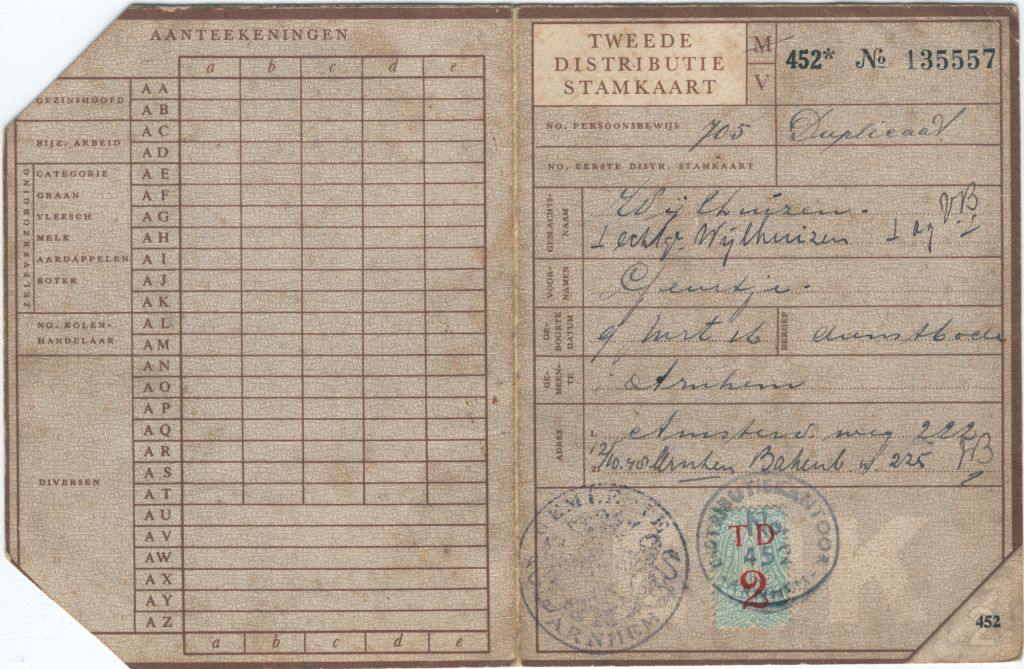 AANTEEKENINGEN
a b c d e
GEZINSHOOFD
AA
AB
BIJZ. ARBEID
AC
AD
ZELFVERZORGING
CATEGORIE AE
GRAAN AF
VLEESCH AG
MELK AH
AARDAPPELEN AI
BOTER AJ
AK
NO. KOLEN-
HANDELAAR
AL
AM
AN
AO
AP
AQ
AR
DIVERSEN AS
AT
AU
AV
AW
AX
AY
AZ
a b c d e
TWEEDE
DISTRIBUTIE
STAMKAART
M
V
452* № 135557
NO. PERSOONSBEWIJS 705 Duplicaat
NO. EERSTE DISTR. STAMKAART
GESLACHTS-
NAAM
Wijlhuizen. VB
echtgr. Wijlhuizen
VOOR-
NAMEN
Geurtje.
GE-
BOORTE
DATUM
9 Mrt 16
BEROEP
dienstbode
GE-
MEEN-
TE
Arnhem
ADRES
1. Amsterd. weg 222
2. Arnhem 225
GEMEENTE
ARNHEM
DISTRIBUTIEKANTOOR
No.
452
ARNHEM
TD
2
K
452